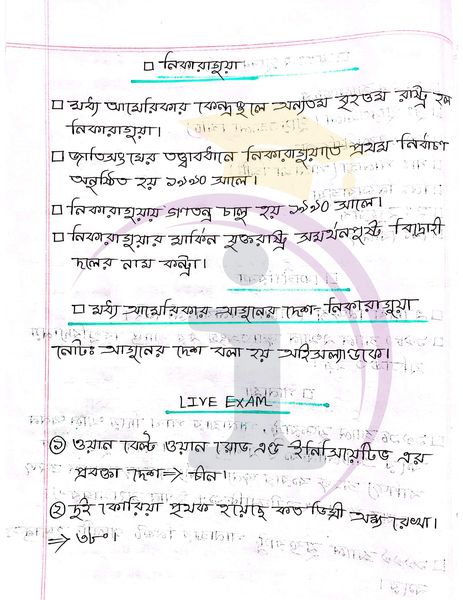 □ নিকারাগুয়া
□ মধ্য আমেরিকার কেন্দ্রস্থলে অন্যতম বৃহত্তম রাষ্ট্র হল
নিকারাগুয়া।
□ জাতিসংঘের তত্ত্বাবধানে নিকারাগুয়াতে প্রথম নির্বাচন
অনুষ্ঠিত হয় ১৯৯০ সালে।
□ নিকারাগুয়ায় গণতন্ত্র চালু হয় ১৯৯০ সালে।
□ নিকারাগুয়ার মার্কিন যুক্তরাষ্ট্র সমর্থনপুষ্ট বিদ্রোহী
দলের নাম কন্ট্রা।
□ মধ্য আমেরিকার আগুনের দেশ- নিকারাগুয়া
নোটঃ আগুনের দেশ বলা হয় আইসল্যান্ডকে।
LIVE EXAM
① ওয়ান বেল্ট ওয়ান রোড এন্ড ইনিসিয়েটিভ এর
প্রবক্তা দেশ ⇒ চীন।
② দুই কোরিয়া পৃথক হয়েছে কত ডিগ্রী অক্ষ রেখা।
⇒ ৩৮°।